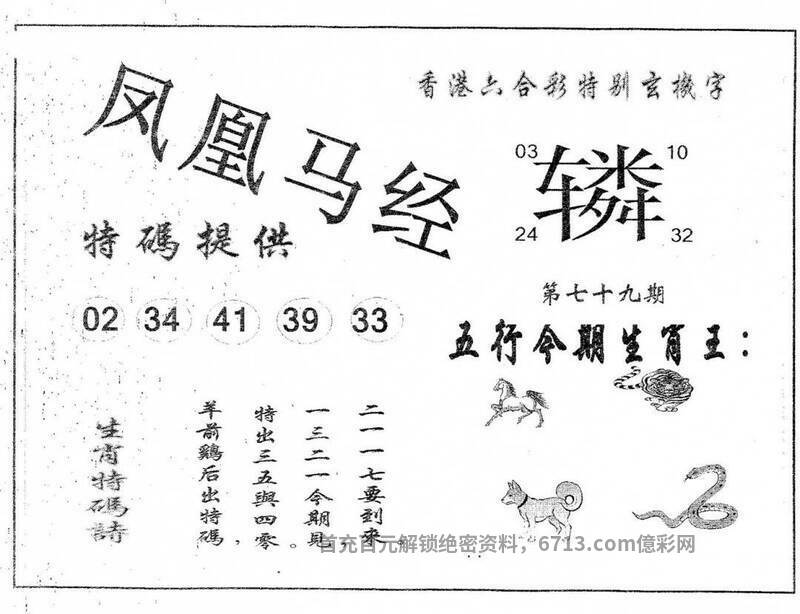 香港六合彩特别玄機字
凤凰马经
03
10
辚
24
32
特碼提供
第七十九期
02 34 41 39 33
五行今期生肖王：
生肖特碼詩
二一一七要到來，
一三二一今期見，
特出三五與四零。
羊前鷄后出特碼，
首充百元解锁绝密资料，6713.com億彩网